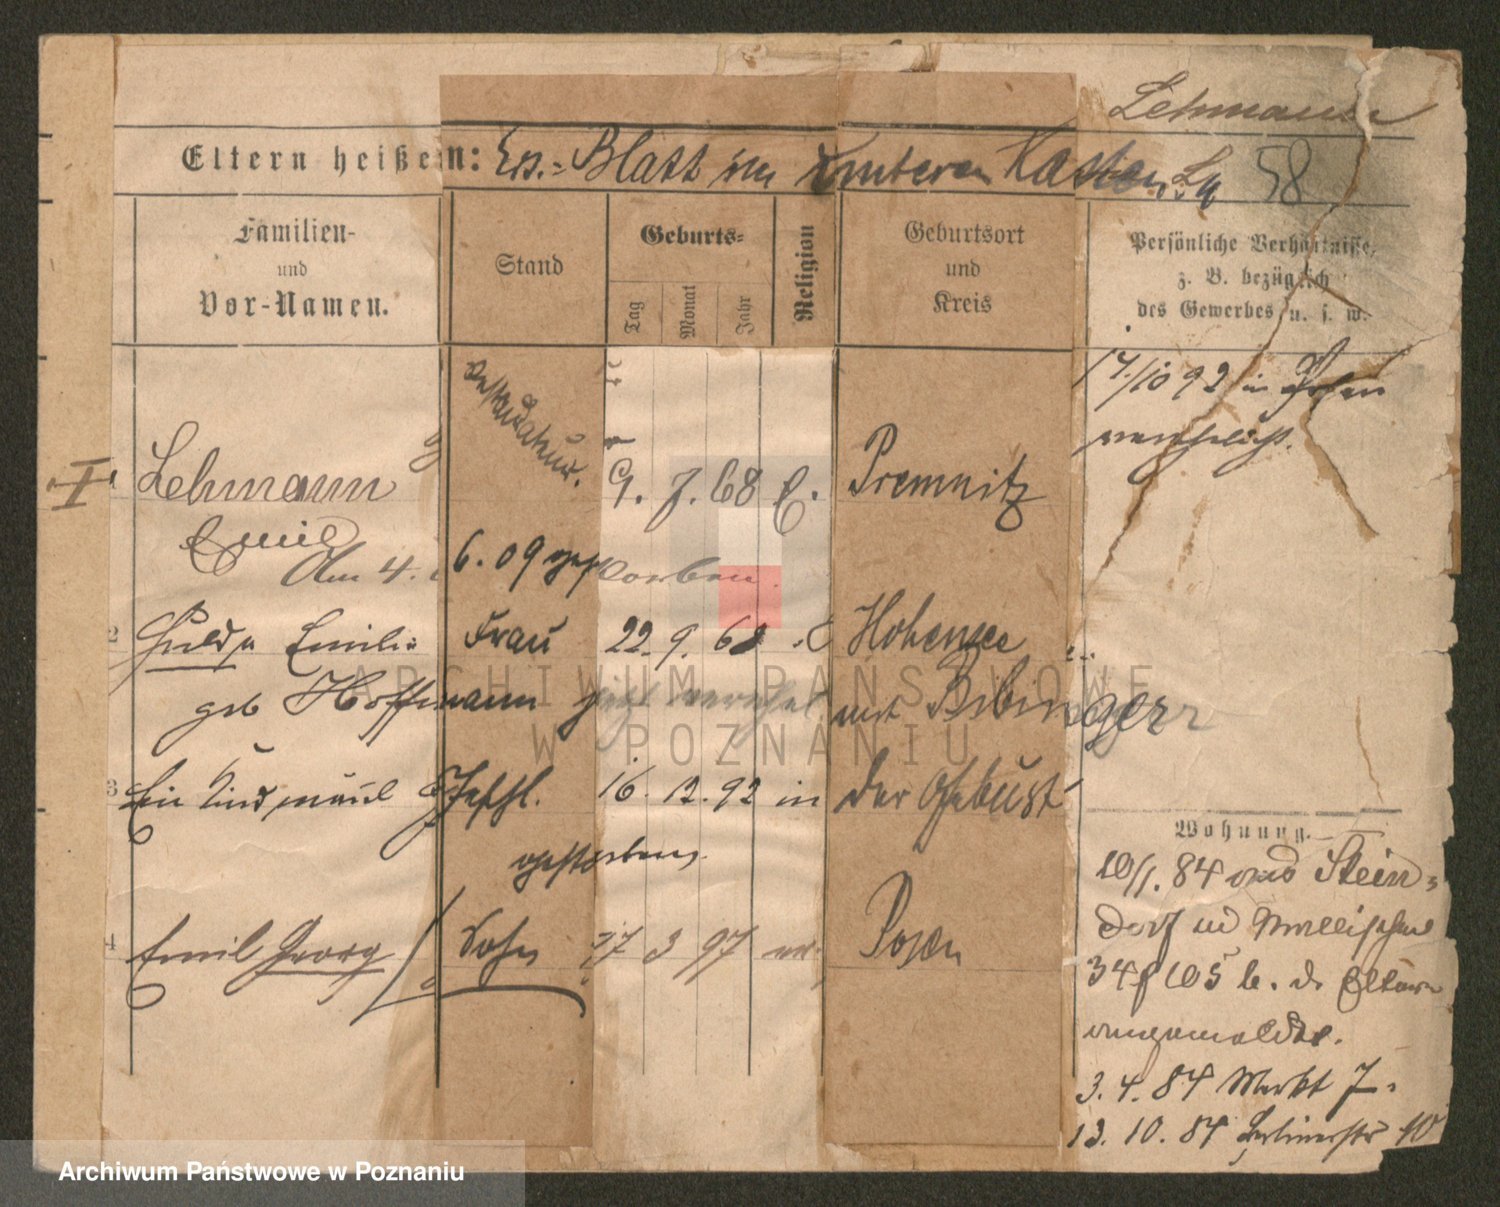 Lehmann
Eltern heißen: Ers.-Blatt im unteren Kasten 58
Familien-
und
Vor-Namen.
Stand
Geburts-
Tag
Monat
Jahr
Religion
Geburtsort
und
Kreis
Persönliche Verhältnisse,
z. B. bezüglich
des Gewerbes u. s. w.
17./10 92 in Posen
verehelicht.
I Lehmann Restaurateur. 9. 7. 68 E. Premnitz
Emil
Am 4. 6. 09 gestorben.
2 Hulda Emilie Frau 22. 9. 68 Hohensee
geb Hoffmann jetzt verehel mit Bibinger
3 Ein Kind männl Geschl. 16. 12. 92 in der Geburt
gestorben.
4 Emil Georg Sohn 17 3 97 ev. Posen
Wohnung.
10/1. 84 Stein-
dorf
34 105 b. d. Eltern
angemeldet.
3. 4. 84 Markt 7.
13. 10. 84 Berlinerstr 10
Archiwum Państwowe w Poznaniu
ARCHIWUM PAŃSTWOWE
W POZNANIU